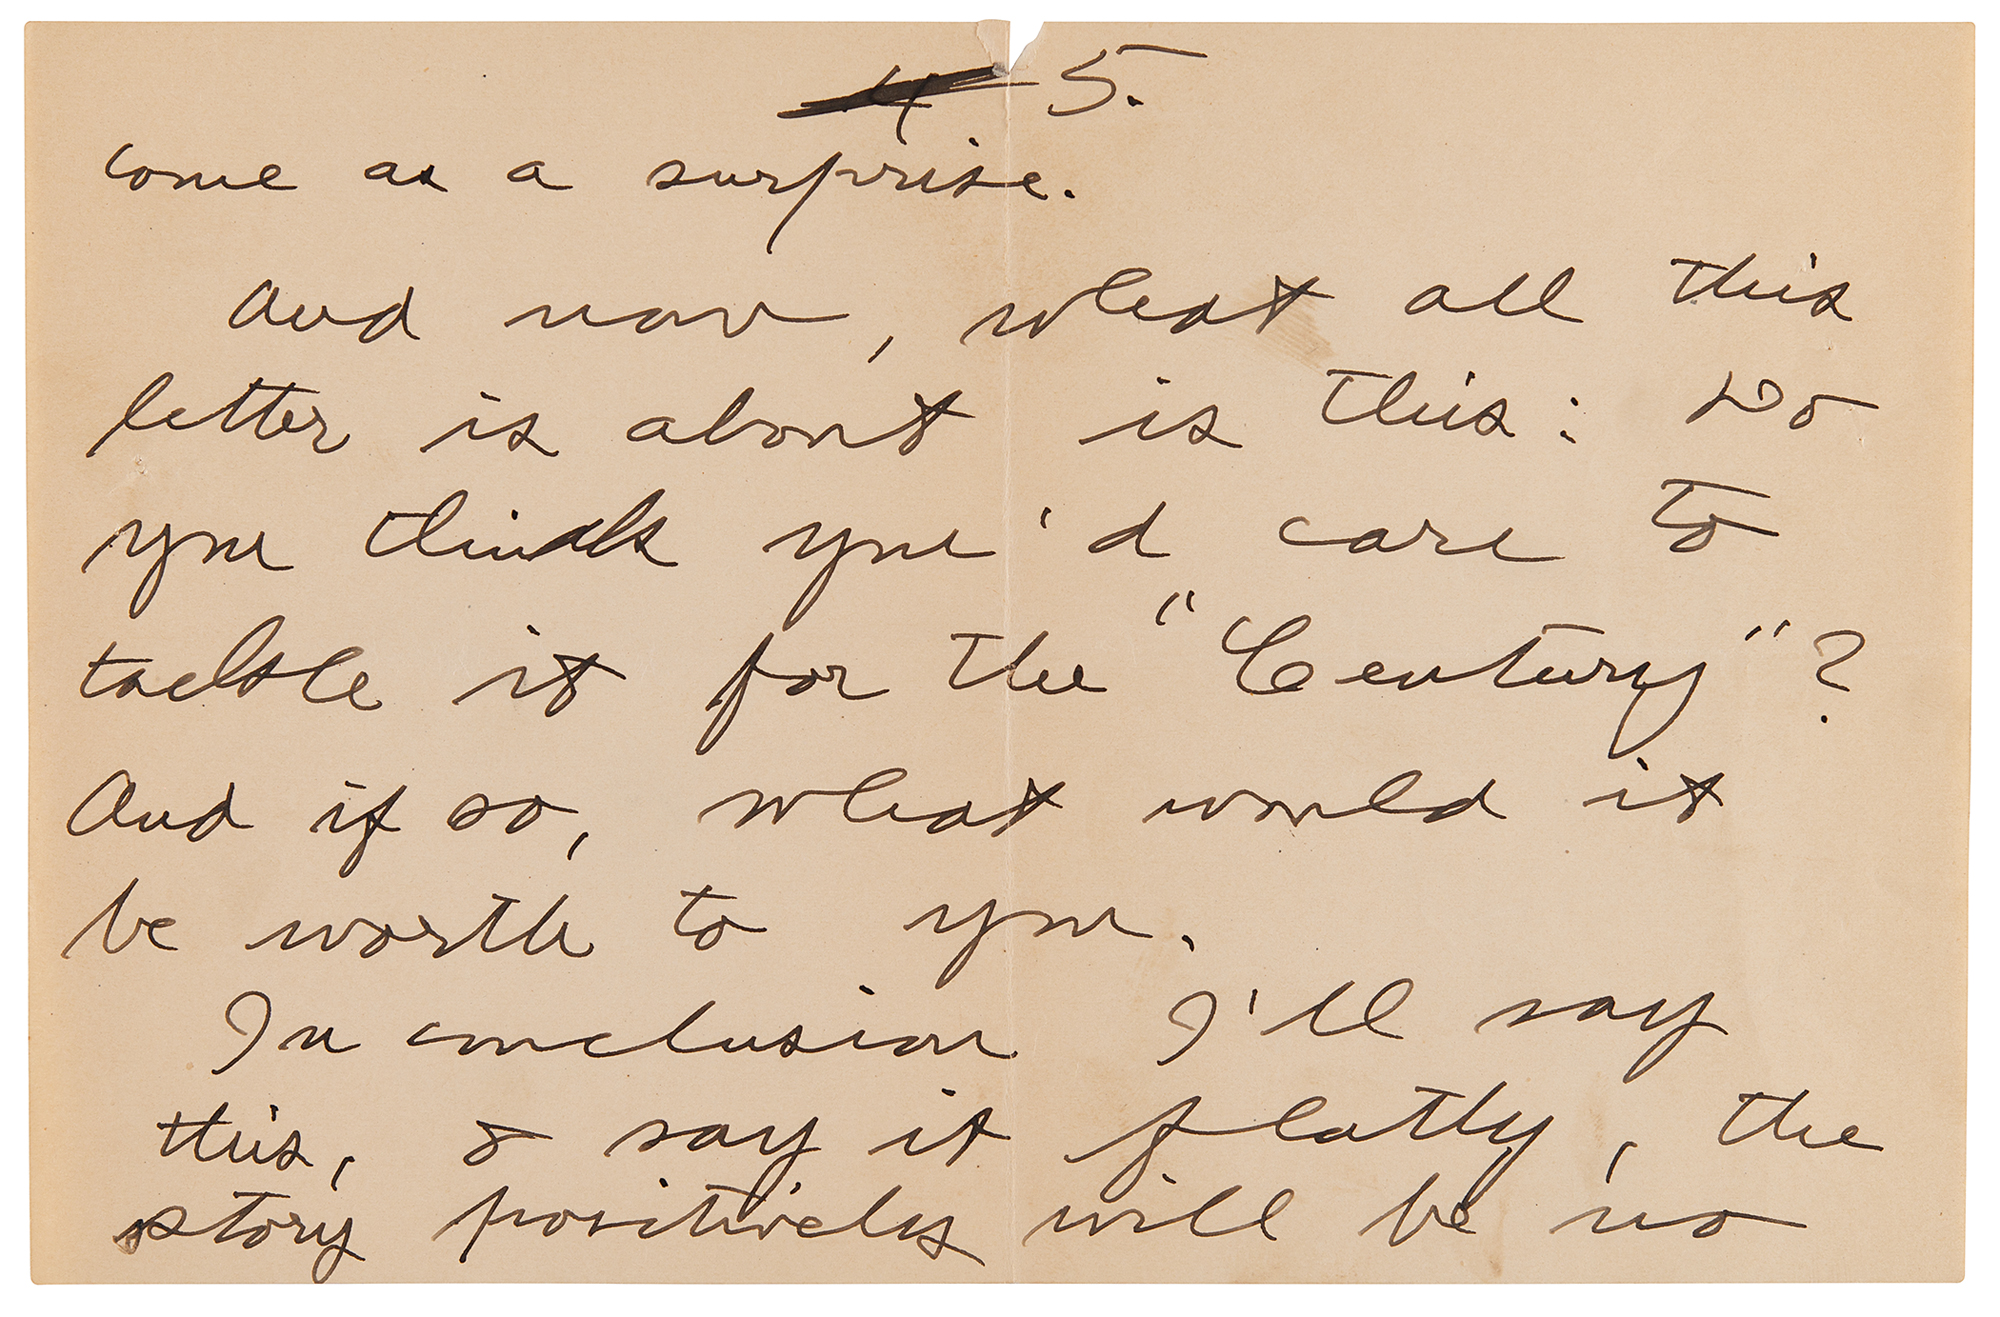 4 5.
come as a surprise.
And now, what all this
letter is about is this: Do
you think you'd care to
tackle it for the "Century"?
And if so, what would it
be worth to you.
In conclusion I'll say
this, & say it flatly, the
story positively will be no